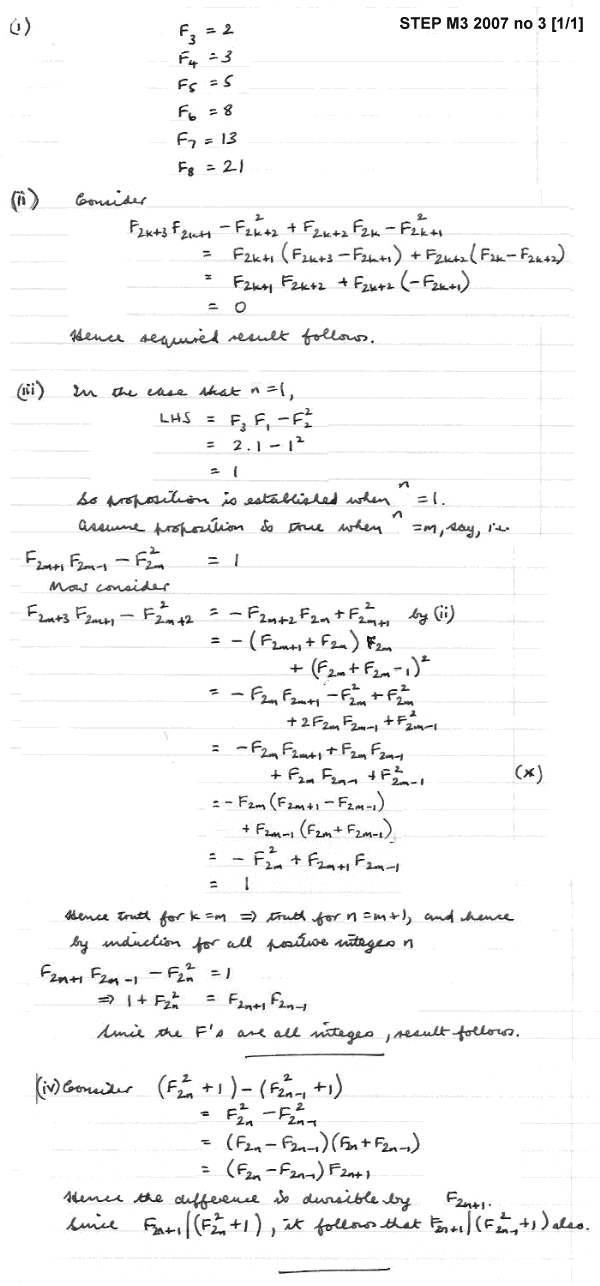 STEP M3 2007 no 3 [1/1]
(i) F₃ = 2
F₄ = 3
F₅ = 5
F₆ = 8
F₇ = 13
F₈ = 21
(ii) Consider
F₂ₖ₊₃ F₂ₖ₊₁ − F²₂ₖ₊₂ + F₂ₖ₊₂ F₂ₖ − F²₂ₖ₊₁
= F₂ₖ₊₁ (F₂ₖ₊₃ − F₂ₖ₊₁) + F₂ₖ₊₂ (F₂ₖ − F₂ₖ₊₂)
= F₂ₖ₊₁ F₂ₖ₊₂ + F₂ₖ₊₂ (−F₂ₖ₊₁)
= 0
Hence required result follows.
(iii) In the case that n = 1,
LHS = F₃ F₁ − F₂²
= 2.1 − 1²
= 1
So proposition is established when n = 1.
Assume proposition is true when n = m, say, i.e.
F₂ₘ₊₁ F₂ₘ₋₁ − F²₂ₘ = 1
Now consider
F₂ₘ₊₃ F₂ₘ₊₁ − F²₂ₘ₊₂ = − F₂ₘ₊₂ F₂ₘ + F²₂ₘ₊₁ by (ii)
= − (F₂ₘ₊₁ + F₂ₘ) F₂ₘ
+ (F₂ₘ + F₂ₘ₋₁)²
= − F₂ₘ F₂ₘ₊₁ − F²₂ₘ + F²₂ₘ
+ 2F₂ₘ F₂ₘ₋₁ + F²₂ₘ₋₁
= − F₂ₘ F₂ₘ₊₁ + F₂ₘ F₂ₘ₋₁
+ F₂ₘ F₂ₘ₋₁ + F²₂ₘ₋₁ (*)
= − F₂ₘ (F₂ₘ₊₁ − F₂ₘ₋₁)
+ F₂ₘ₋₁ (F₂ₘ + F₂ₘ₋₁)
= − F²₂ₘ + F₂ₘ₊₁ F₂ₘ₋₁
= 1
Hence truth for k = m ⇒ truth for n = m+1, and hence
by induction for all positive integers n
F₂ₙ₊₁ F₂ₙ₋₁ − F²₂ₙ = 1
⇒ 1 + F²₂ₙ = F₂ₙ₊₁ F₂ₙ₋₁
Since the F's are all integers, result follows.
(iv) Consider (F²₂ₙ + 1) − (F²₂ₙ₋₁ + 1)
= F²₂ₙ − F²₂ₙ₋₁
= (F₂ₙ − F₂ₙ₋₁)(F₂ₙ + F₂ₙ₋₁)
= (F₂ₙ − F₂ₙ₋₁) F₂ₙ₊₁
Hence the difference is divisible by F₂ₙ₊₁.
Since F₂ₙ₊₁ | (F²₂ₙ + 1), it follows that F₂ₙ₊₁ | (F²₂ₙ₋₁ + 1) also.